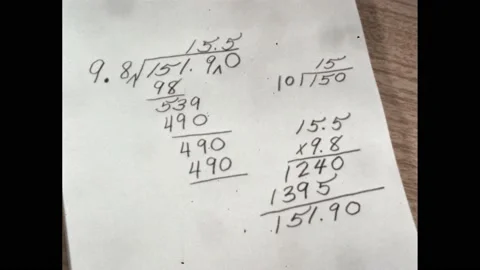 15.5
9.8√151.9‸0
98
539
490
490
490
15
10√150
15.5
x9.8
1240
1395
151.90